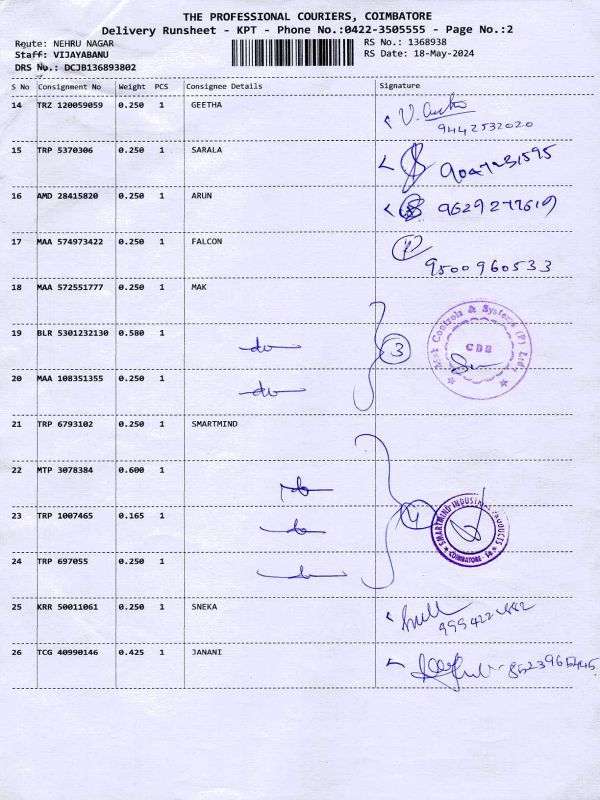 THE PROFESSIONAL COURIERS, COIMBATORE
Delivery Runsheet - KPT - Phone No.:0422-3505555 - Page No.:2
Route: NEHRU NAGAR RS No.: 1368938
Staff: VIJAYABANU RS Date: 18-May-2024
DRS No.: DCJB136893802
S No Consignment No Weight PCS Consignee Details Signature
14 TRZ 120059059 0.250 1 GEETHA
9442532020
15 TRP 5370306 0.250 1 SARALA
16 AMD 28415820 0.250 1 ARUN 9629277619
17 MAA 574973422 0.250 1 FALCON
9500960533
18 MAA 572551777 0.250 1 MAK
19 BLR 5301232130 0.580 1 do 3 Mak Controls & Systems (P) Ltd CBE
20 MAA 108351355 0.250 1 do
21 TRP 6793102 0.250 1 SMARTMIND
22 MTP 3078384 0.600 1 do
23 TRP 1007465 0.165 1 do 4 SMARTMIND INDUSTRIAL PRODUCTS COIMBATORE
24 TRP 697055 0.250 1 do
25 KRR 50011061 0.250 1 SNEKA
26 TCG 40990146 0.425 1 JANANI